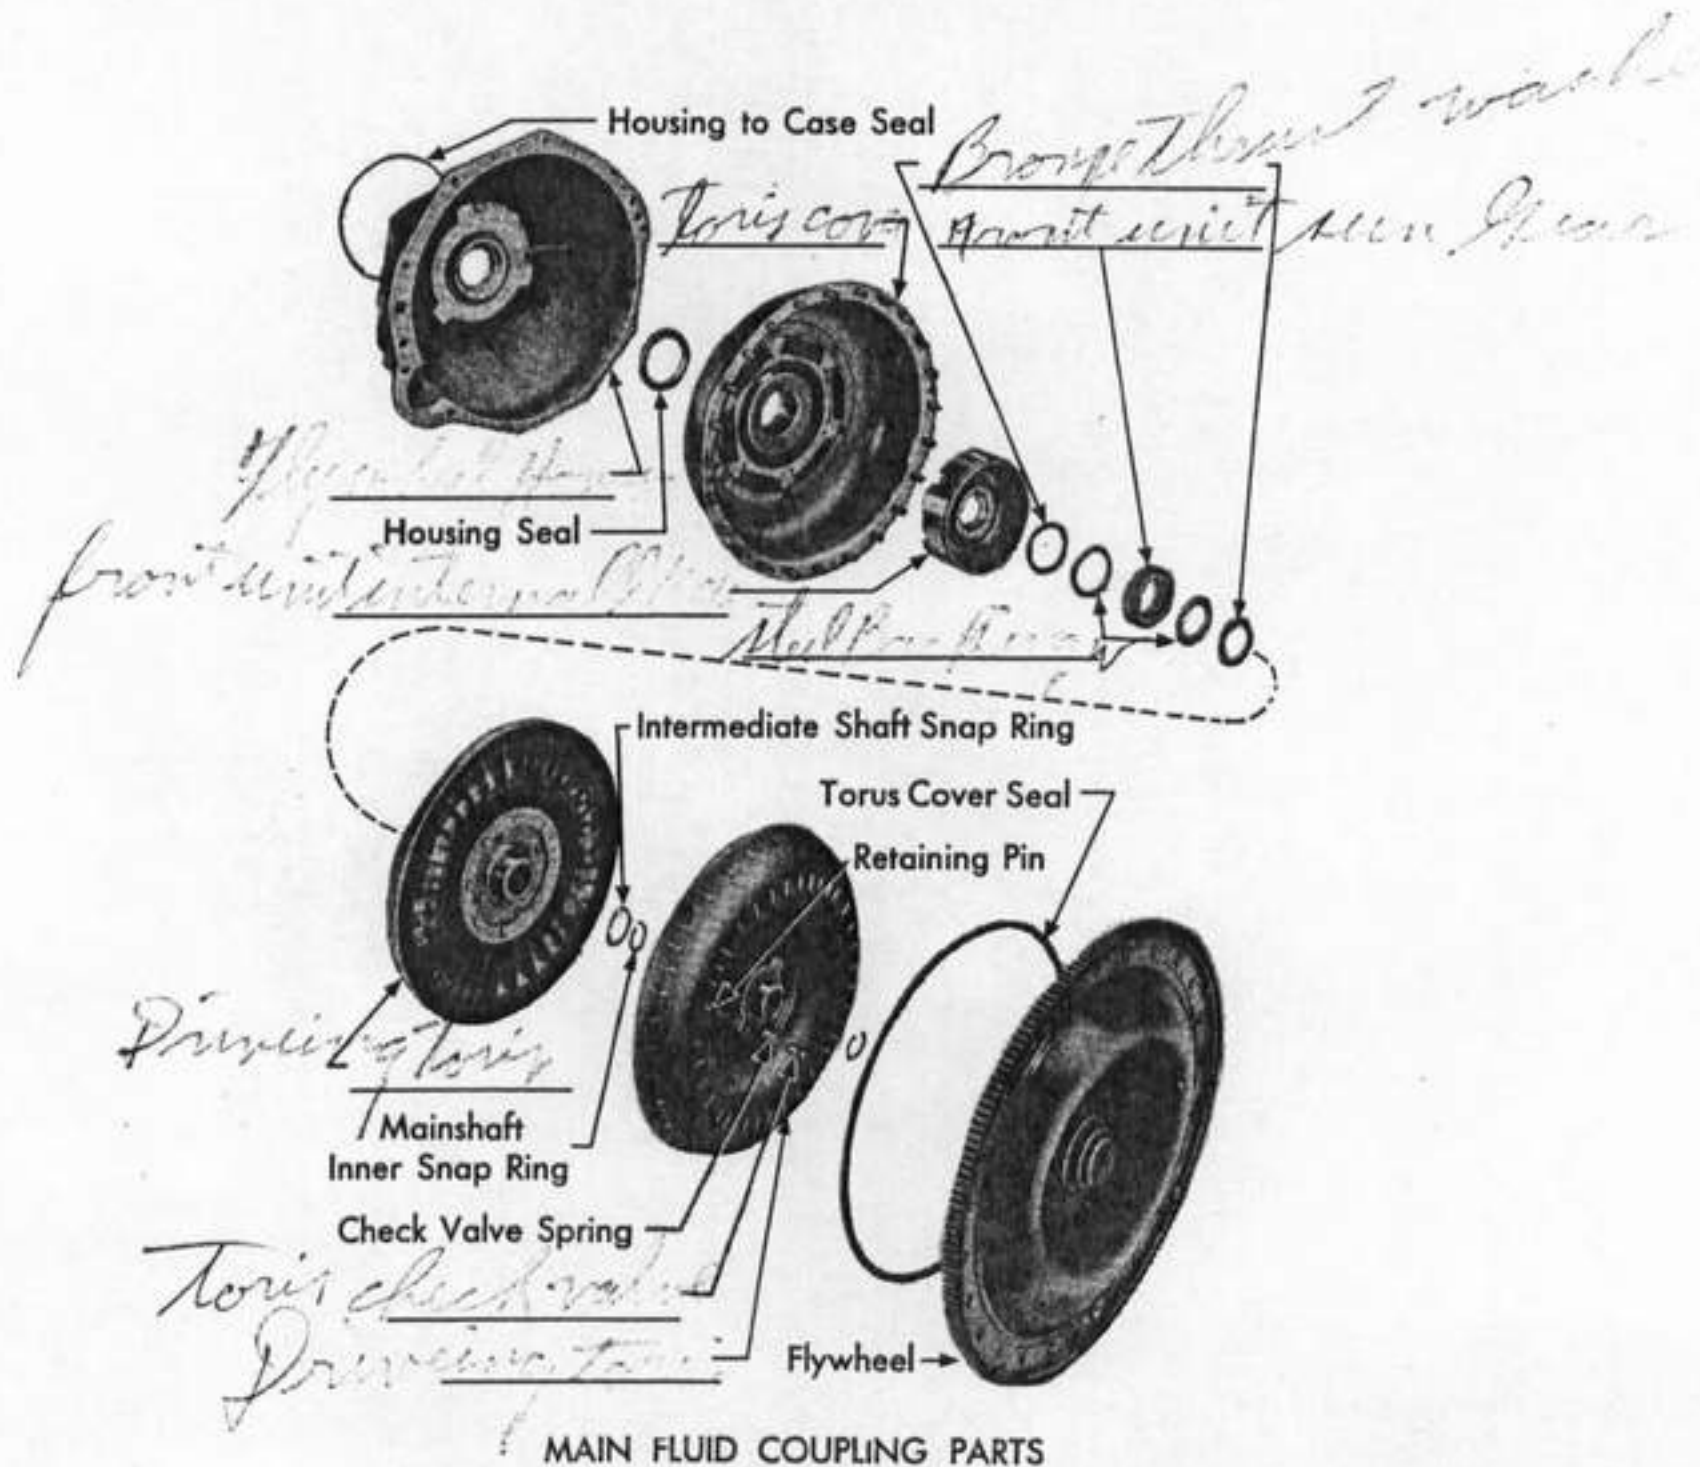 Housing to Case Seal
Bronze Thrust
Toris cover
front unit sun Gear
Flywheel
Housing Seal
front unit internal
Steel
Intermediate Shaft Snap Ring
Torus Cover Seal
Retaining Pin
Driveing Toris
Mainshaft
Inner Snap Ring
Check Valve Spring
Toris check valve
Driveing toris
Flywheel
MAIN FLUID COUPLING PARTS